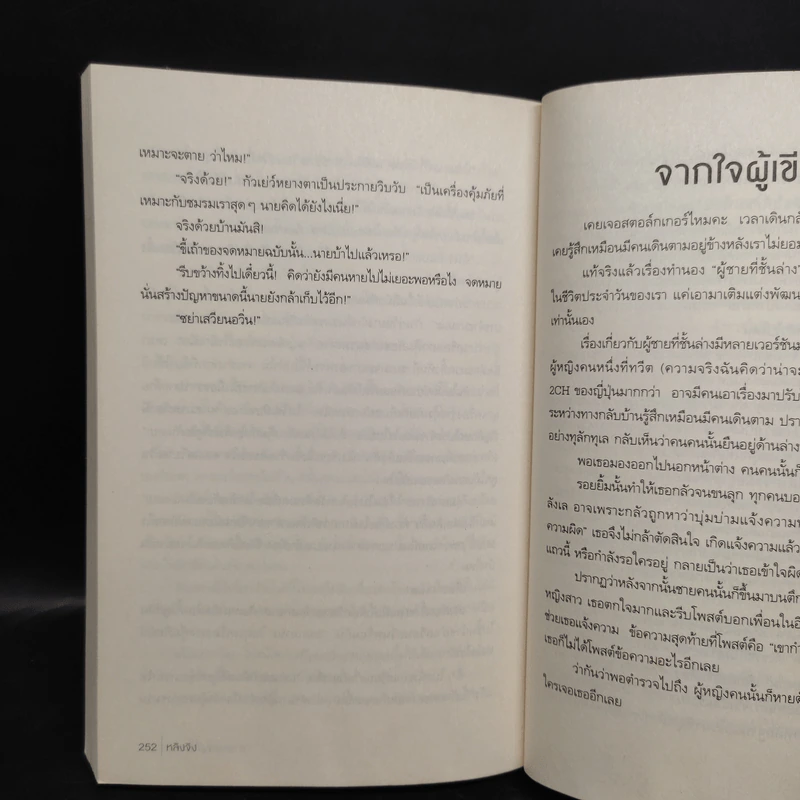 เหมาะจะตาย ว่าไหม!"
"จริงด้วย!" กัวเย่ว์หยางตาเป็นประกายวิบวับ "เป็นเครื่องคุ้มภัยที่
เหมาะกับชมรมเราสุดๆ นายคิดได้ยังไงเนี่ย!"
จริงด้วยบ้านมันสิ!
"ขี้เถ้าของจดหมายฉบับนั้น...นายบ้าไปแล้วเหรอ!"
"รีบขว้างทิ้งไปเดี๋ยวนี้! คิดว่ายังมีคนหายไปไม่เยอะพอหรือไง จดหมาย
นั่นสร้างปัญหาขนาดนี้นายยังกล้าเก็บไว้อีก!"
"ซย่าเสวียนอวิ่น!"
252 | หลิงจิง
จากใจผู้เขี
เคยเจอสตอล์กเกอร์ไหมคะ เวลาเดินกลั
เคยรู้สึกเหมือนมีคนเดินตามอยู่ข้างหลังเราไม่ยอม
แท้จริงแล้วเรื่องทำนอง "ผู้ชายที่ชั้นล่าง"
ในชีวิตประจำวันของเรา แค่เอามาเติมแต่งพัฒน
เท่านั้นเอง
เรื่องเกี่ยวกับผู้ชายที่ชั้นล่างมีหลายเวอร์ชัน
ผู้หญิงคนหนึ่งที่ทวีต (ความจริงฉันคิดว่าน่าจะ
2CH ของญี่ปุ่นมากกว่า อาจมีคนเอาเรื่องมาปรับ
ระหว่างทางกลับบ้านรู้สึกเหมือนมีคนเดินตาม ปรา
อย่างทุลักทุเล กลับเห็นว่าคนคนนั้นยืนอยู่ด้านล่าง
พอเธอมองออกไปนอกหน้าต่าง คนคนนั้นก็
รอยยิ้มนั้นทำให้เธอกลัวจนขนลุก ทุกคนบอ
ลังเล อาจเพราะกลัวถูกหาว่าบุ่มบ่ามแจ้งความ
ความผิด" เธอจึงไม่กล้าตัดสินใจ เกิดแจ้งความแล้ว
แถวนี้ หรือกำลังรอใครอยู่ กลายเป็นว่าเธอเข้าใจผิด
ปรากฏว่าหลังจากนั้นชายคนนั้นก็ขึ้นมาบนตึก
หญิงสาว เธอตกใจมากและรีบโพสต์บอกเพื่อนในอิ
ช่วยเธอแจ้งความ ข้อความสุดท้ายที่โพสต์คือ "เขากำ
เธอก็ไม่ได้โพสต์ข้อความอะไรอีกเลย
ว่ากันว่าพอตำรวจไปถึง ผู้หญิงคนนั้นก็หายตั
ใครเจอเธออีกเลย